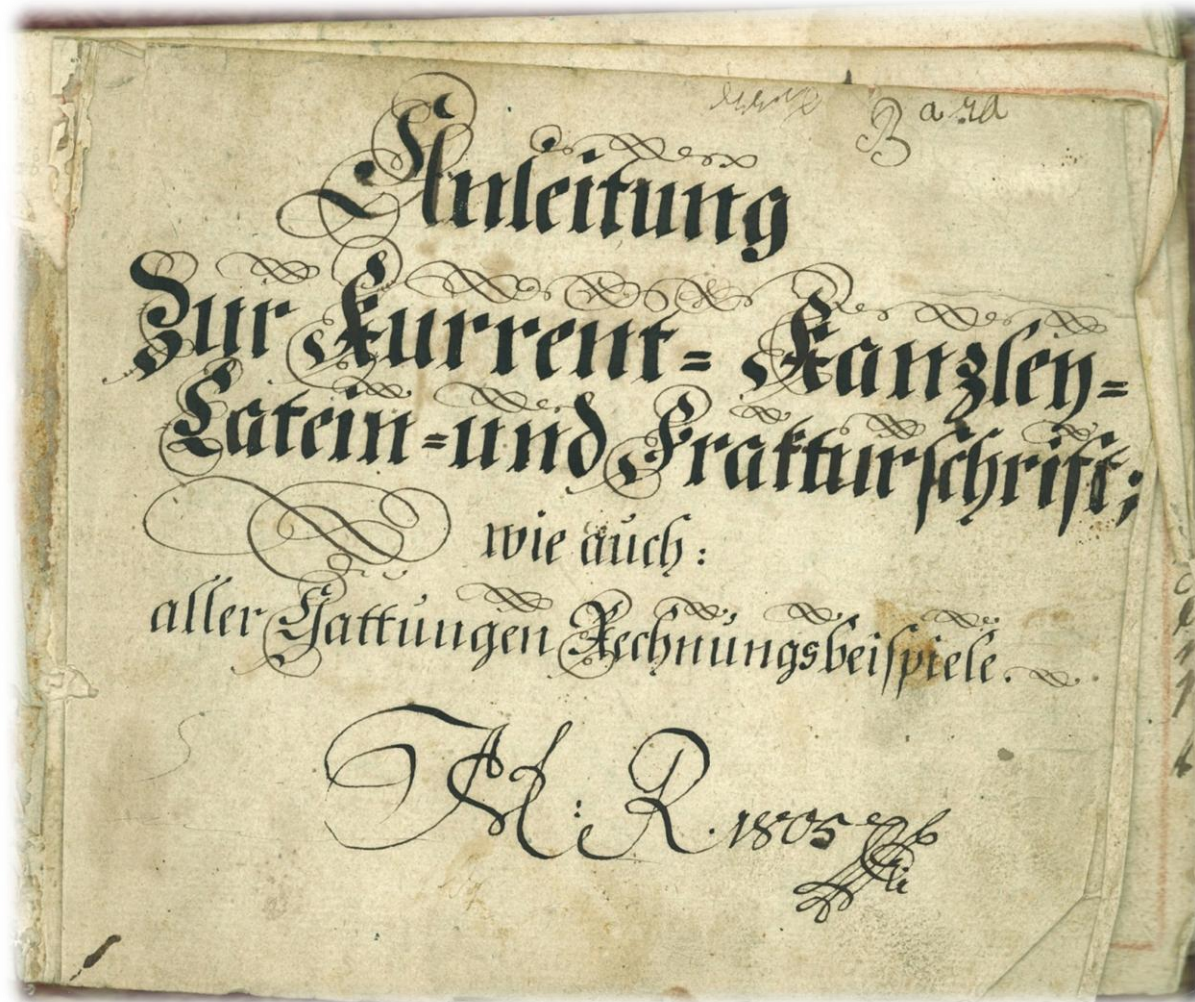 Anleitung
Zur Kurrent= Kanzley=
Latein=und Frakturschrift;
wie auch:
aller Gattungen Rechnungsbeispiele.
R. 1805